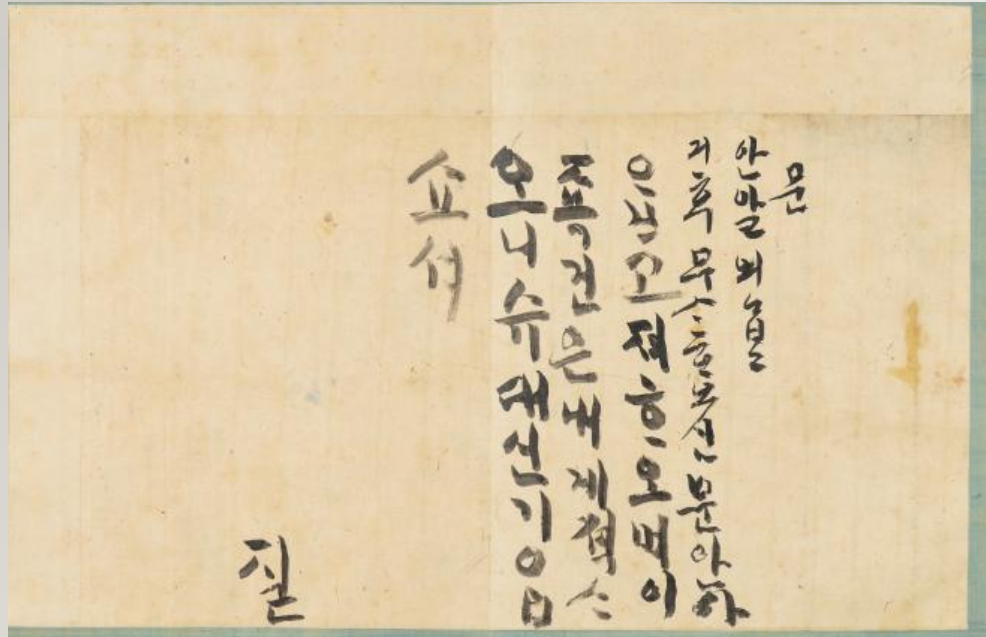 문
안알외ᄋᆞᆸ고
긔후무ᄉᆞᄒᆞ오신문안아
ᄋᆞᆸ고져ᄒᆞ오며이
죡건은내게젹ᄉᆞ
오니슈대신기ᄋᆞᆸ
쇼셔
질